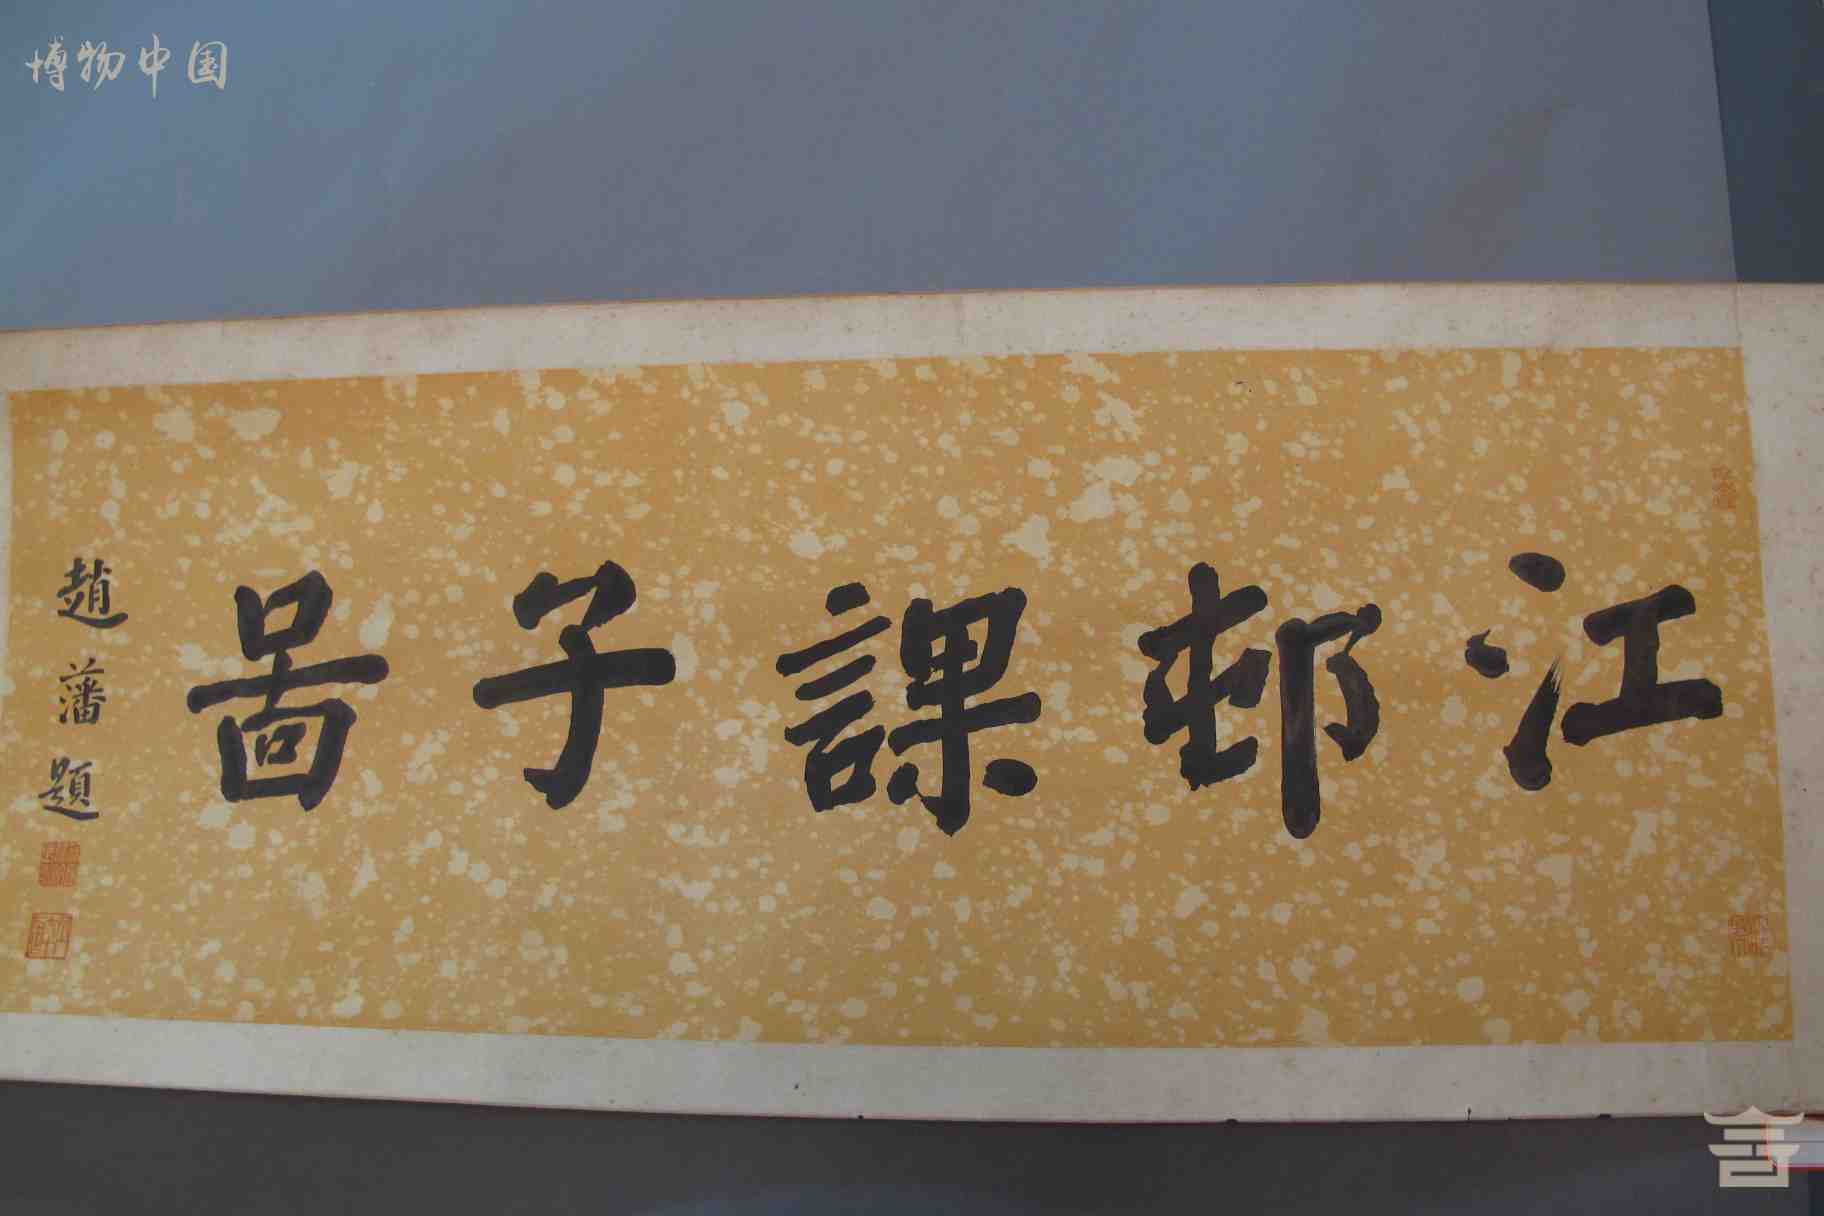 博物中国
江邨課子啚
趙藩題